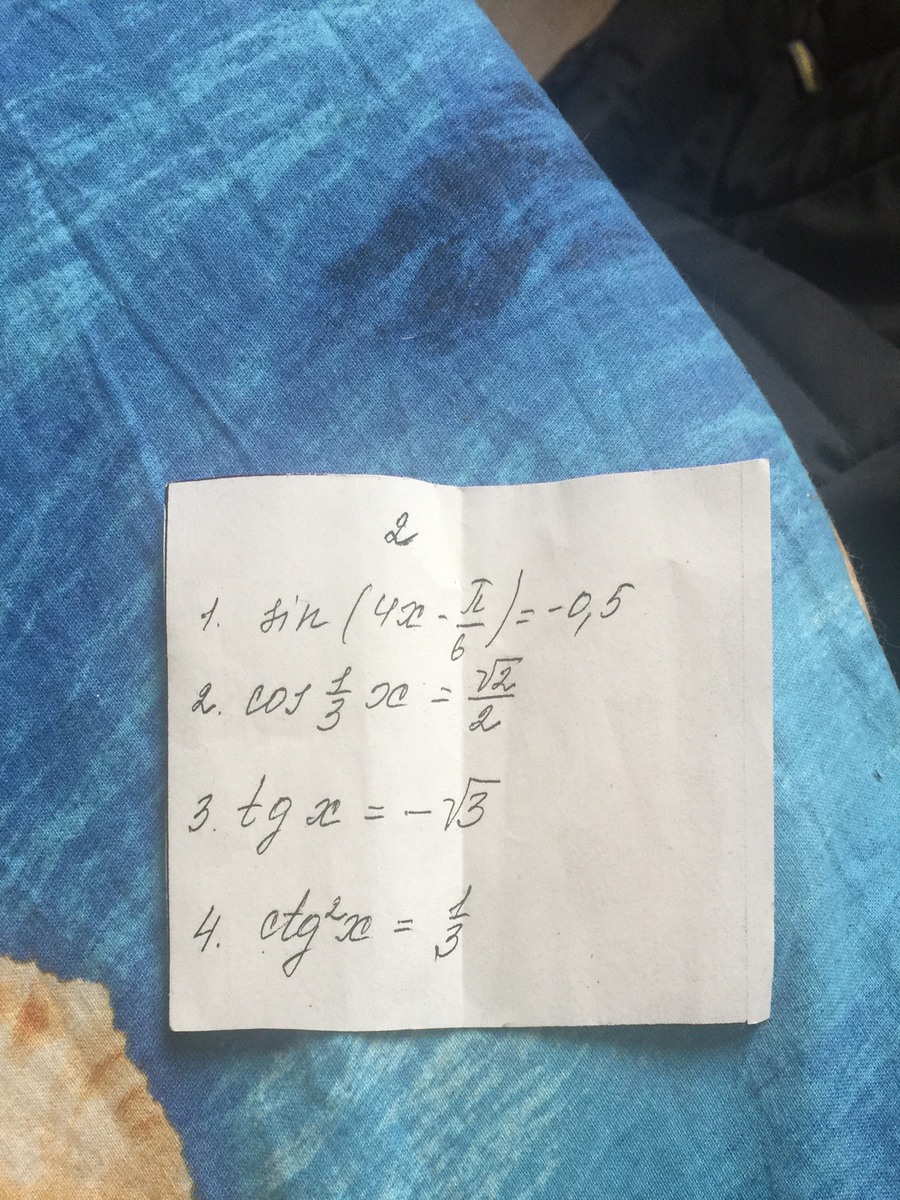 2
1. sin (4x - π/6) = -0,5
2. cos 1/3 x = √2/2
3. tg x = -√3
4. ctg²x = 1/3